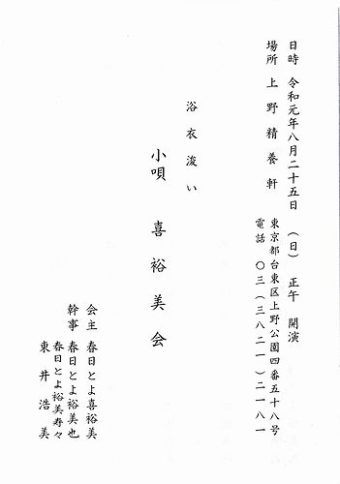 日時 令和元年八月二十五日 (日) 正午 開演
場所 上野精養軒
東京都台東区上野公園四番五十八号
電話 〇三(三八二一)二一八一
浴衣浚い
小唄 喜裕美会
会主 春日とよ喜裕美
幹事 春日とよ裕美也
春日とよ裕美寿々
東井浩美